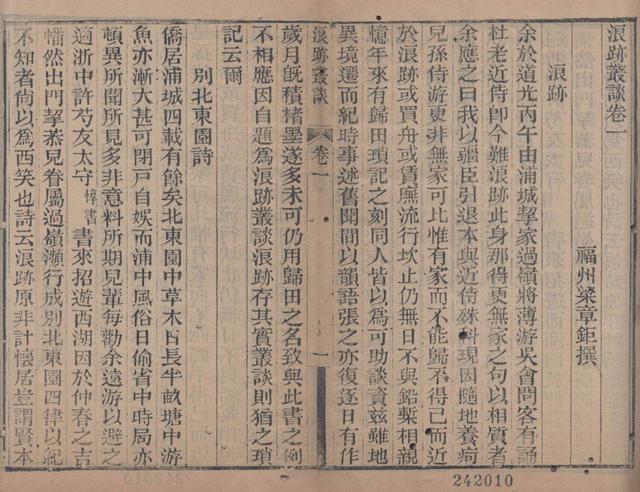 浪跡叢談卷一
福州梁章鉅撰
浪跡
余於道光丙午由浦城挈家過嶺將薄游吳會問客有誦
杜老近侍卽今難浪跡此身那得更無家之句以相質者
余應之曰我以疆臣引退本與近侍殊科現因隨地養痾
兒孫侍游更非無家可比惟有家而不能歸不得已而近
於浪跡或買舟或賃廡流行坎止仍無日不與鉛槧相親
憶年來有歸田瑣記之刻同人皆以爲可助談資茲雖地
異境遷而紀時事述舊聞間以韻語張之亦復逐日有作
浪跡叢談
卷一
一
歲月旣積楮墨遂多未可仍用歸田之名致與此書之例
不相應因自題爲浪跡叢談浪跡存其實叢談則猶之瑣
記云爾
別北東園詩
僑居浦城四載有餘矣北東園中草木日長半畝塘中游
魚亦漸大甚可閉戶自娛而浦中風俗日偷省中時局亦
頓異所聞所見多非意料所期兒輩每勸余遠游以避之
適浙中許芍友太守 惇書 書來招遊西湖因於仲春之吉
幡然出門挈恭兒眷屬過嶺瀕行成別北東園四律以紀
不知者尙以爲西笑也詩云浪跡原非計懷居豈謂賢本
242010